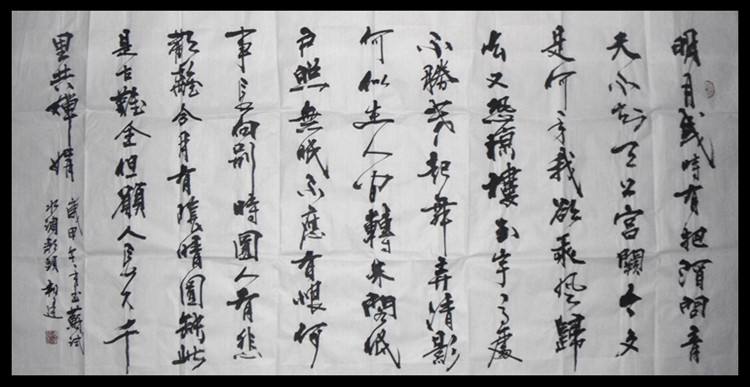 明月幾時有把酒問青
天不知天上宮闕今夕
是何年我欲乘風歸
去又恐瓊樓玉宇高處
不勝寒起舞弄清影
何似在人間轉朱閣低
戶照無眠不應有恨何
事長向別時圓人有悲
歡離合月有陰晴圓缺此
是古難全但願人長久千
里共嬋娟
歲甲午年書蘇軾
水調歌頭